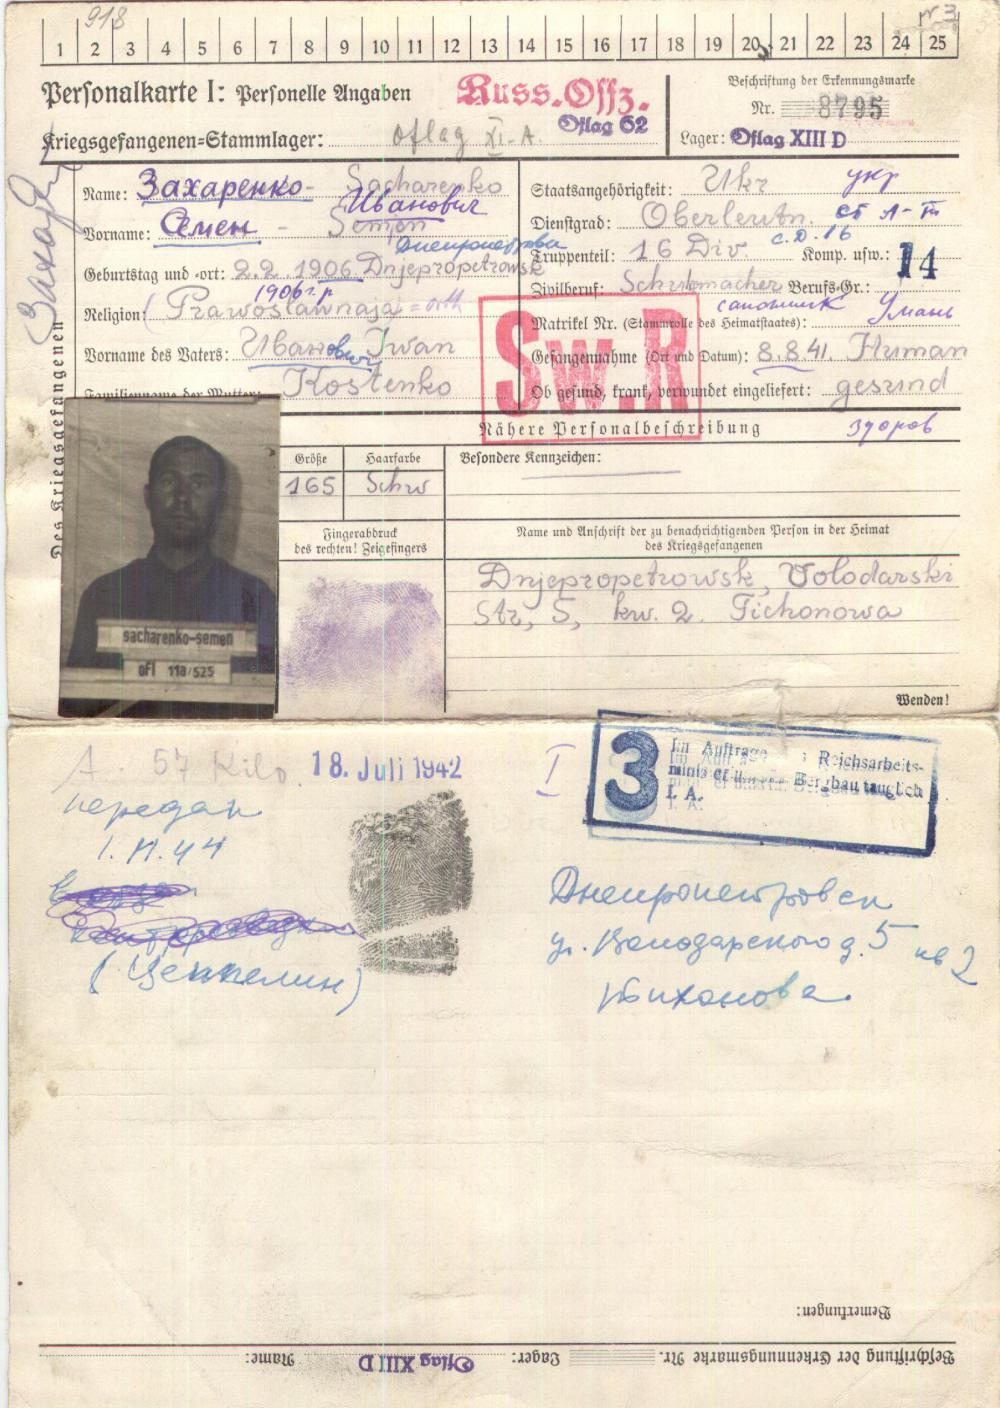 918
№ 3
1 2 3 4 5 6 7 8 9 10 11 12 13 14 15 16 17 18 19 20 21 22 23 24 25
Personalkarte I: Personelle Angaben
Russ. Offz.
Oflag 62
Beschriftung der Erkennungsmarke
Nr. 8795
Kriegsgefangenen-Stammlager: Oflag XI-A.
Lager: Oflag XIII D
Des Kriegsgefangenen
Name: Захаренко - Sacharenko
Иванович
Vorname: Семен - Semjen
Днепропетровск
Geburtstag und -ort: 2.2.1906. Dnjepropetrowsk
1906 г.р
Religion: Prawoslawnaja = orth
Vorname des Vaters: Iwan
Familienname der Mutter: Kostenko
Staatsangehörigkeit: Ukr укр
Dienstgrad: Oberleutn. ст л-т
Truppenteil: 16 Div. с.д. 16 Komp. usw.: 14
Zivilberuf: Schuhmacher Berufs-Gr.:
сапожник Умань
Matrikel Nr. (Stammrolle des Heimatstaates):
Gefangennahme (Ort und Datum): 8.8.41. Human
Ob gesund, krank, verwundet eingeliefert: gesund
Sw.R
Nähere Personalbeschreibung
здоров
Größe Haarfarbe Besondere Kennzeichen:
165 Schw
Fingerabdruck
des rechten! Zeigefingers
Name und Anschrift der zu benachrichtigenden Person in der Heimat
des Kriegsgefangenen
Dnjepropetrowsk, Volodarski
Str, 5, kw. 2. Tichonowa
sacharenko-semen
ofl 11a/525
Wenden!
A. 57 Kilo. 18. Juli 1942
I
3 Im Auftrage Reichsarbeits-
Bergbau tauglich
I. A.
передан
(Цеппелин)
Днепропетровск
ул. Володарского д. 5 кв 2
Тихонова
Bemerkungen:
Beschriftung der Erkennungsmarke Nr. Lager: Oflag XIII D Name: